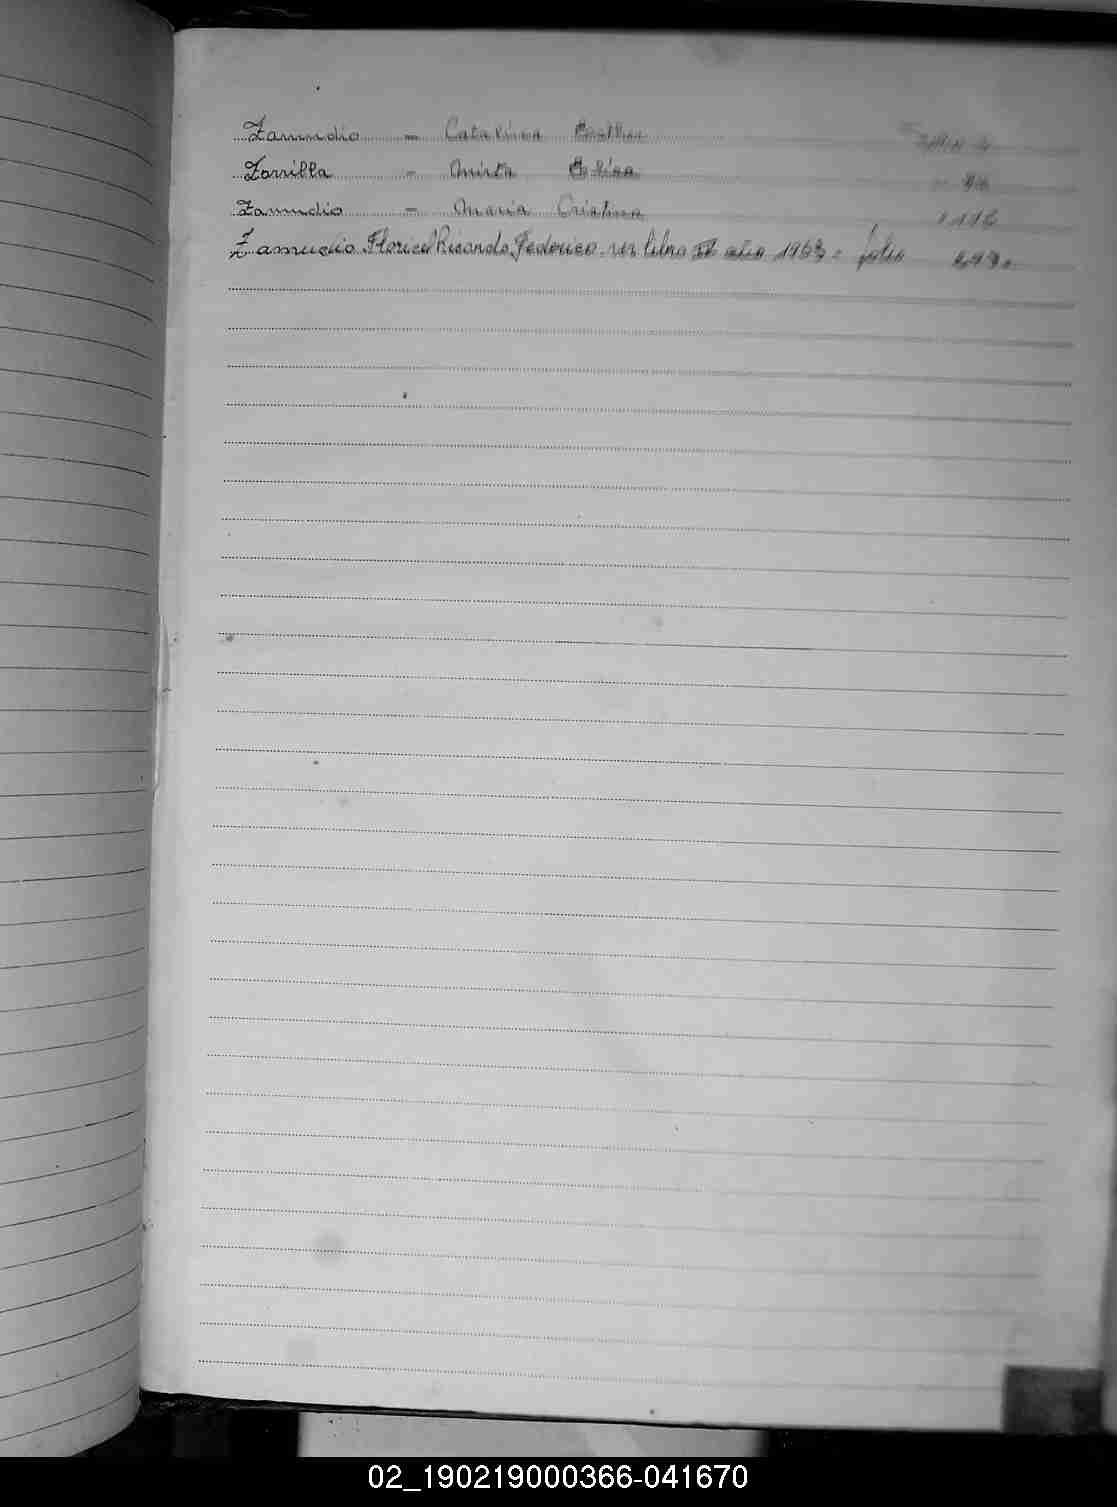 Zamudio - Catalina Esther Folio
Zorrilla - Mirta Elisa
Zamudio - Maria Cristina " 116
Zamudio Ricardo Federico. ver libro II año 1963 = folio
02_190219000366-041670